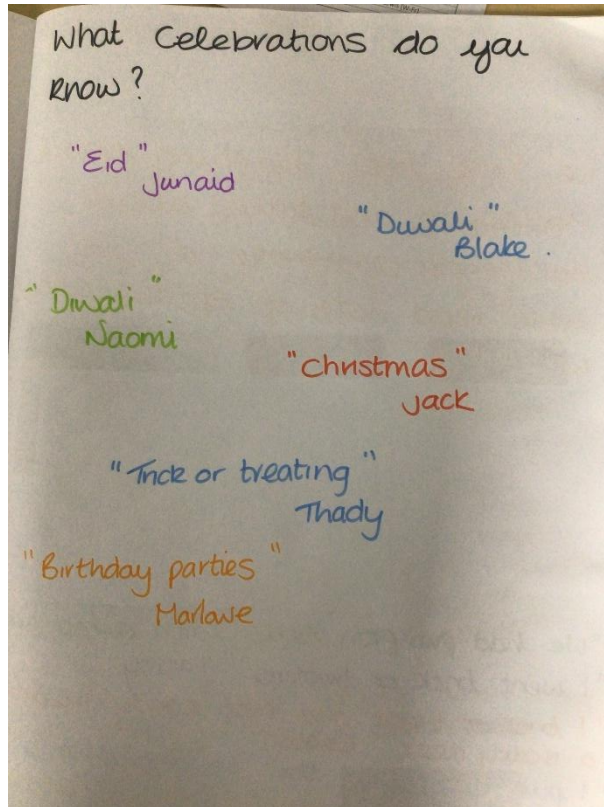 What Celebrations do you
know?
"Eid"
Junaid
"Diwali"
Blake.
"Diwali"
Naomi
"Christmas"
Jack
"Trick or treating"
Thady
"Birthday parties"
Marlowe